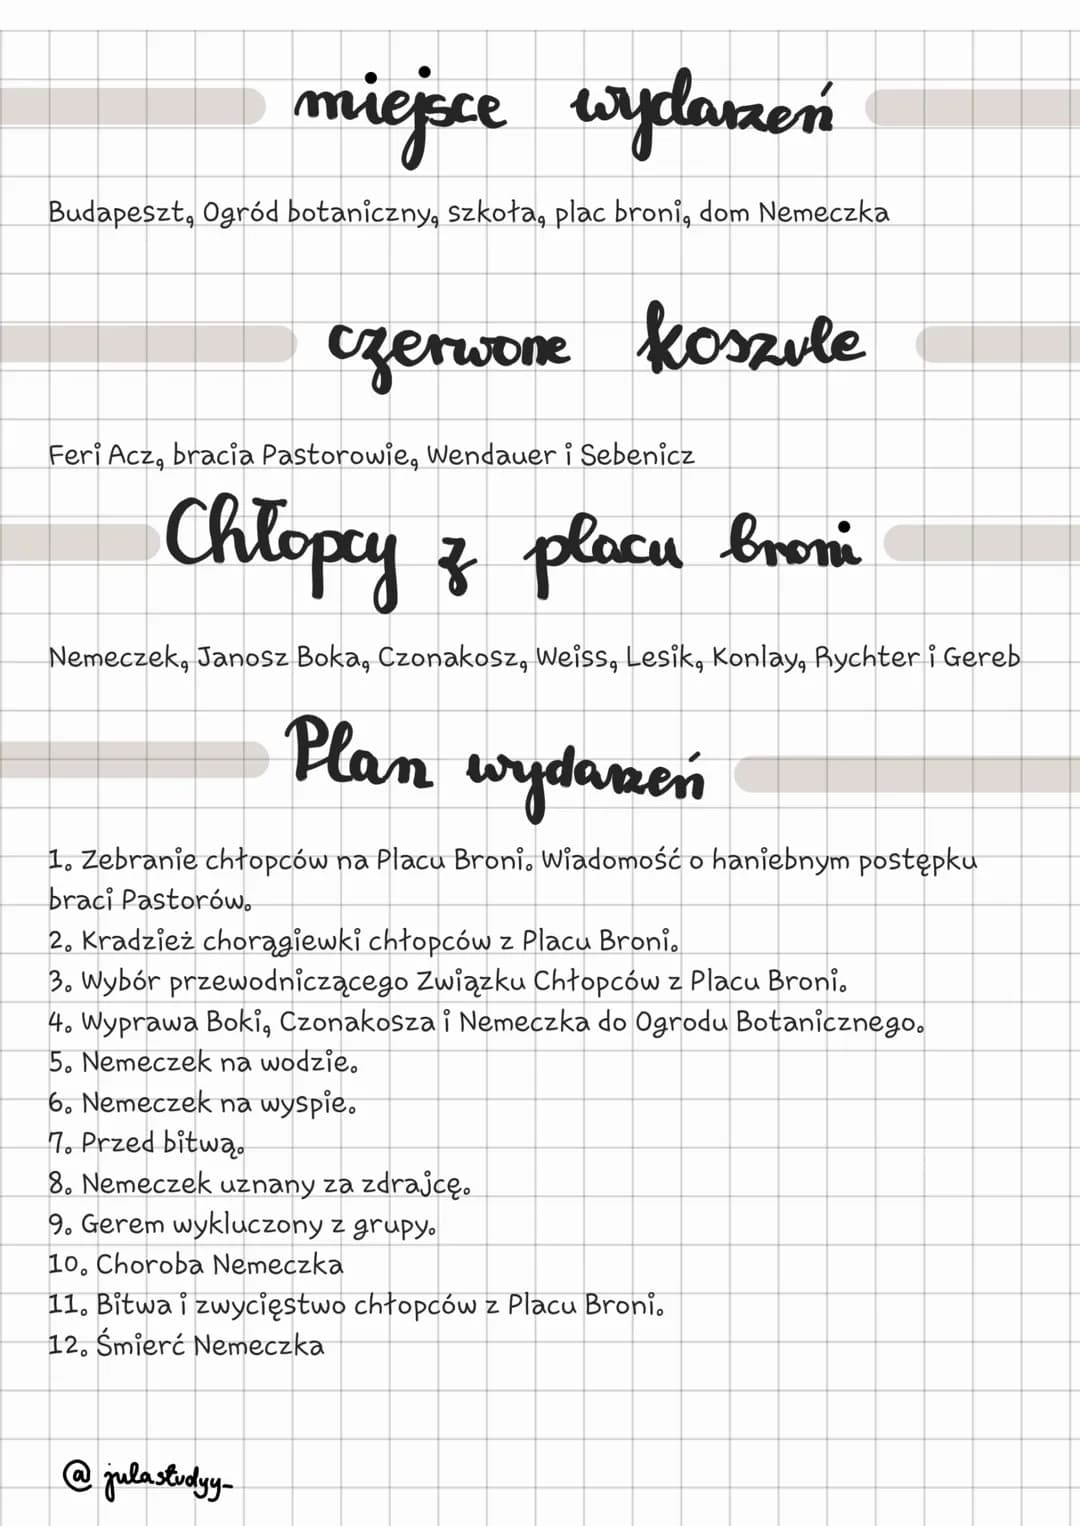 miejsce wydarzeń
Budapeszt, Ogród botaniczny, szkoła, plac broni, dom Nemeczka
czerwone koszule
Feri Acz, bracia Pastorowie, Wendauer i Sebenicz
Chłopcy z placu broni
Nemeczek, Janosz Boka, Czonakosz, Weiss, Lesik, Konlay, Rychter i Gereb
Plan wydarzeń
1. Zebranie chłopców na Placu Broni. Wiadomość o haniebnym postępku
braci Pastorów.
2. Kradzież chorągiewki chłopców z Placu Broni.
3. Wybór przewodniczącego Związku Chłopców z Placu Broni.
4. Wyprawa Boki, Czonakosza i Nemeczka do Ogrodu Botanicznego.
5. Nemeczek na wodzie.
6. Nemeczek na wyspie.
7. Przed bitwą.
8. Nemeczek uznany za zdrajcę.
9. Gerem wykluczony z grupy.
10. Choroba Nemeczka
11. Bitwa i zwycięstwo chłopców z Placu Broni.
12. Śmierć Nemeczka
@julastudyy_